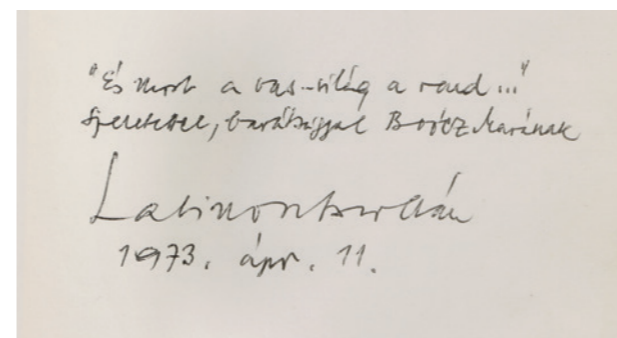 "És most a vas-világ a rend..."
Szeretettel, barátsággal Boócz Marának
Latinovits Zoltán
1973. ápr. 11.